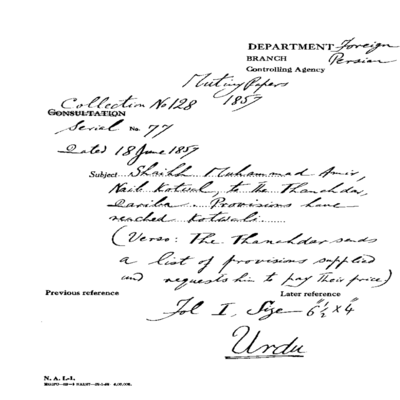 DEPARTMENT Foreign
BRANCH Persian
Controlling Agency
Mutiny Papers
Collection No 128 1857
CONSULTATION
Serial No. 77
Dated 18 June 1857
Subject Shaikh Muhammad Amir,
Naib Kotwal, to the Thanahdar,
Dariba. Provisions have
reached Kotwali
(Verso: The Thanahdar sends
a list of provisions supplied
and requests him to pay their price)
Previous reference Later reference
Fol I, Size— 6½" x 4"
Urdu
N. A. I.-1.